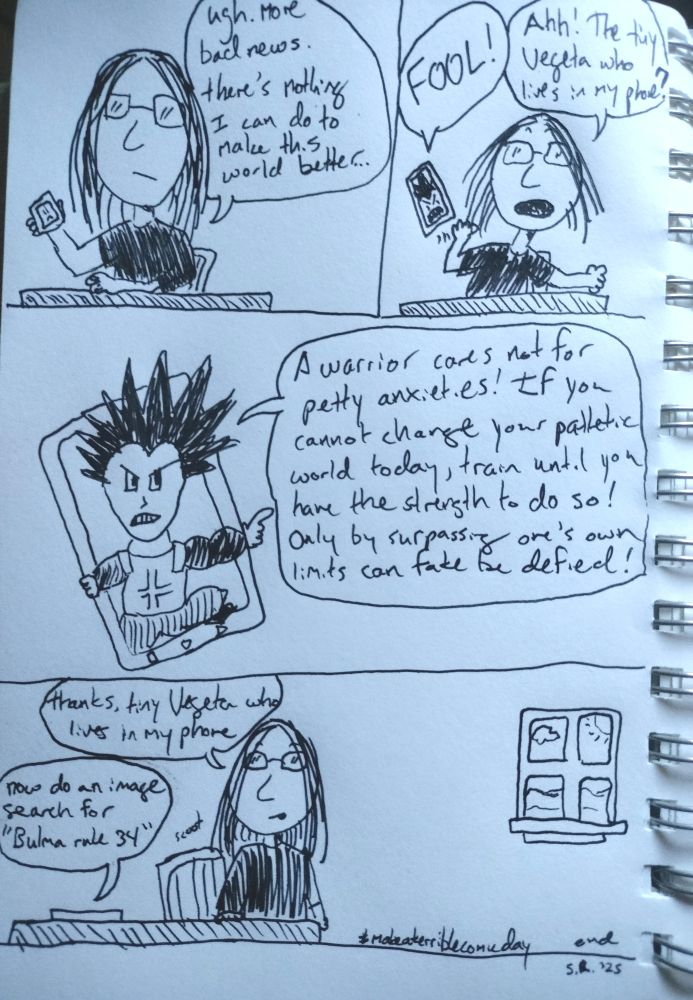 ugh. More
bad news.
there's nothing
I can do to
make this
world better...
FOOL!
Ahh! The tiny
Vegeta who
lives in my phone?
A warrior cares not for
petty anxieties! If you
cannot change your pathetic
world today, train until you
have the strength to do so!
Only by surpassing one's own
limits can fate be defied!
thanks, tiny Vegeta who
lives in my phone
now do an image
search for
"Bulma rule 34"
scoot
#makeaterriblecomicday
end
S.R. '25